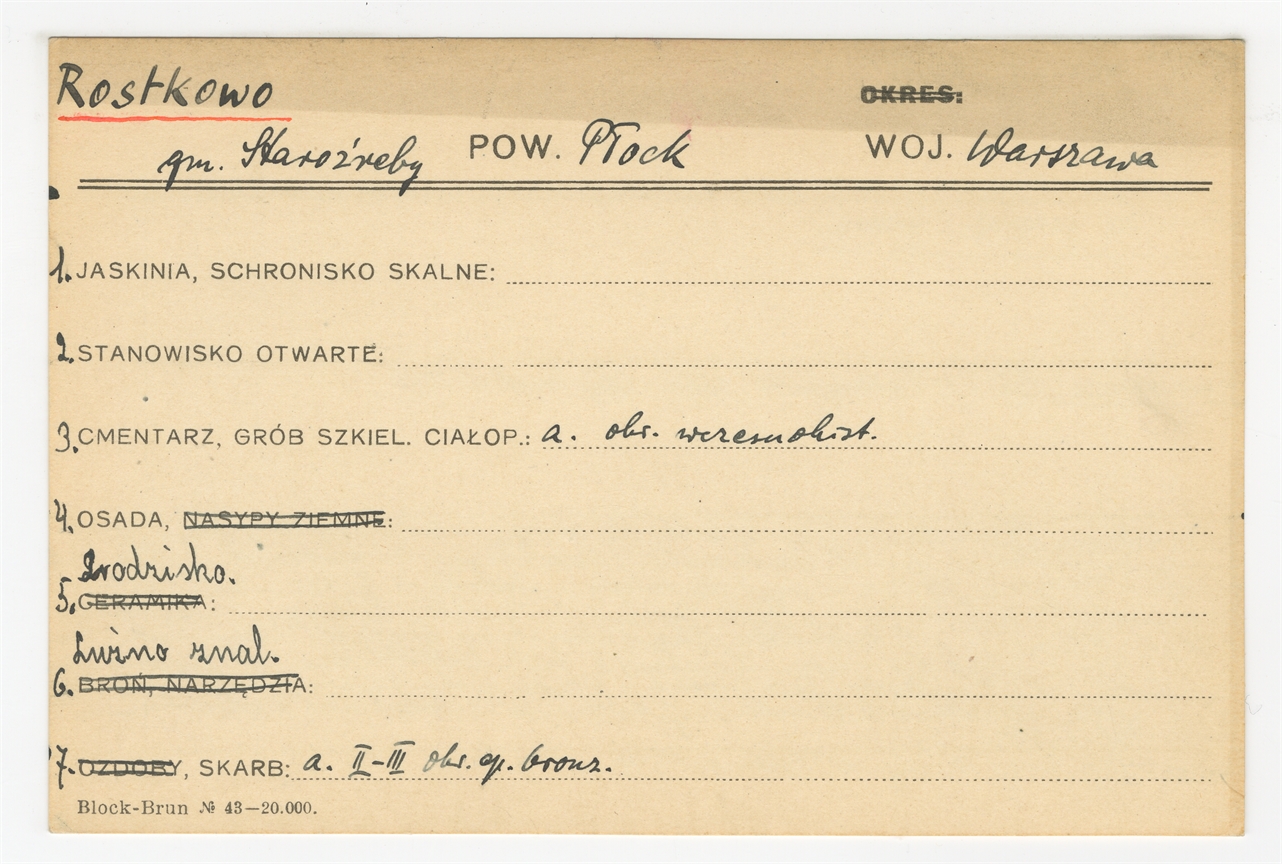 Rostkowo
OKRES:
gm. Staroźreby POW. Płock WOJ. Warszawa
1. JASKINIA, SCHRONISKO SKALNE:
2. STANOWISKO OTWARTE:
3. CMENTARZ, GRÓB SZKIEL. CIAŁOP.: a. okr. wczesnohist.
4. OSADA, NASYPY ZIEMNE:
Grodzisko.
5. CERAMIKA:
Luźno znal.
6. BROŃ, NARZĘDZIA:
7. OZDOBY, SKARB: a. II-III okr. ep. bronz.
Block-Brun № 43—20.000.